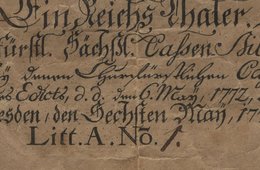 Ein Reichs Thaler.
Fürstl. Sächßl. Cassen Bil
denen Churfürstlichen Ca
Edicts, d. d. den 6. May, 1772,
esden, den Sechsten May, 17
Litt. A. No. 1.